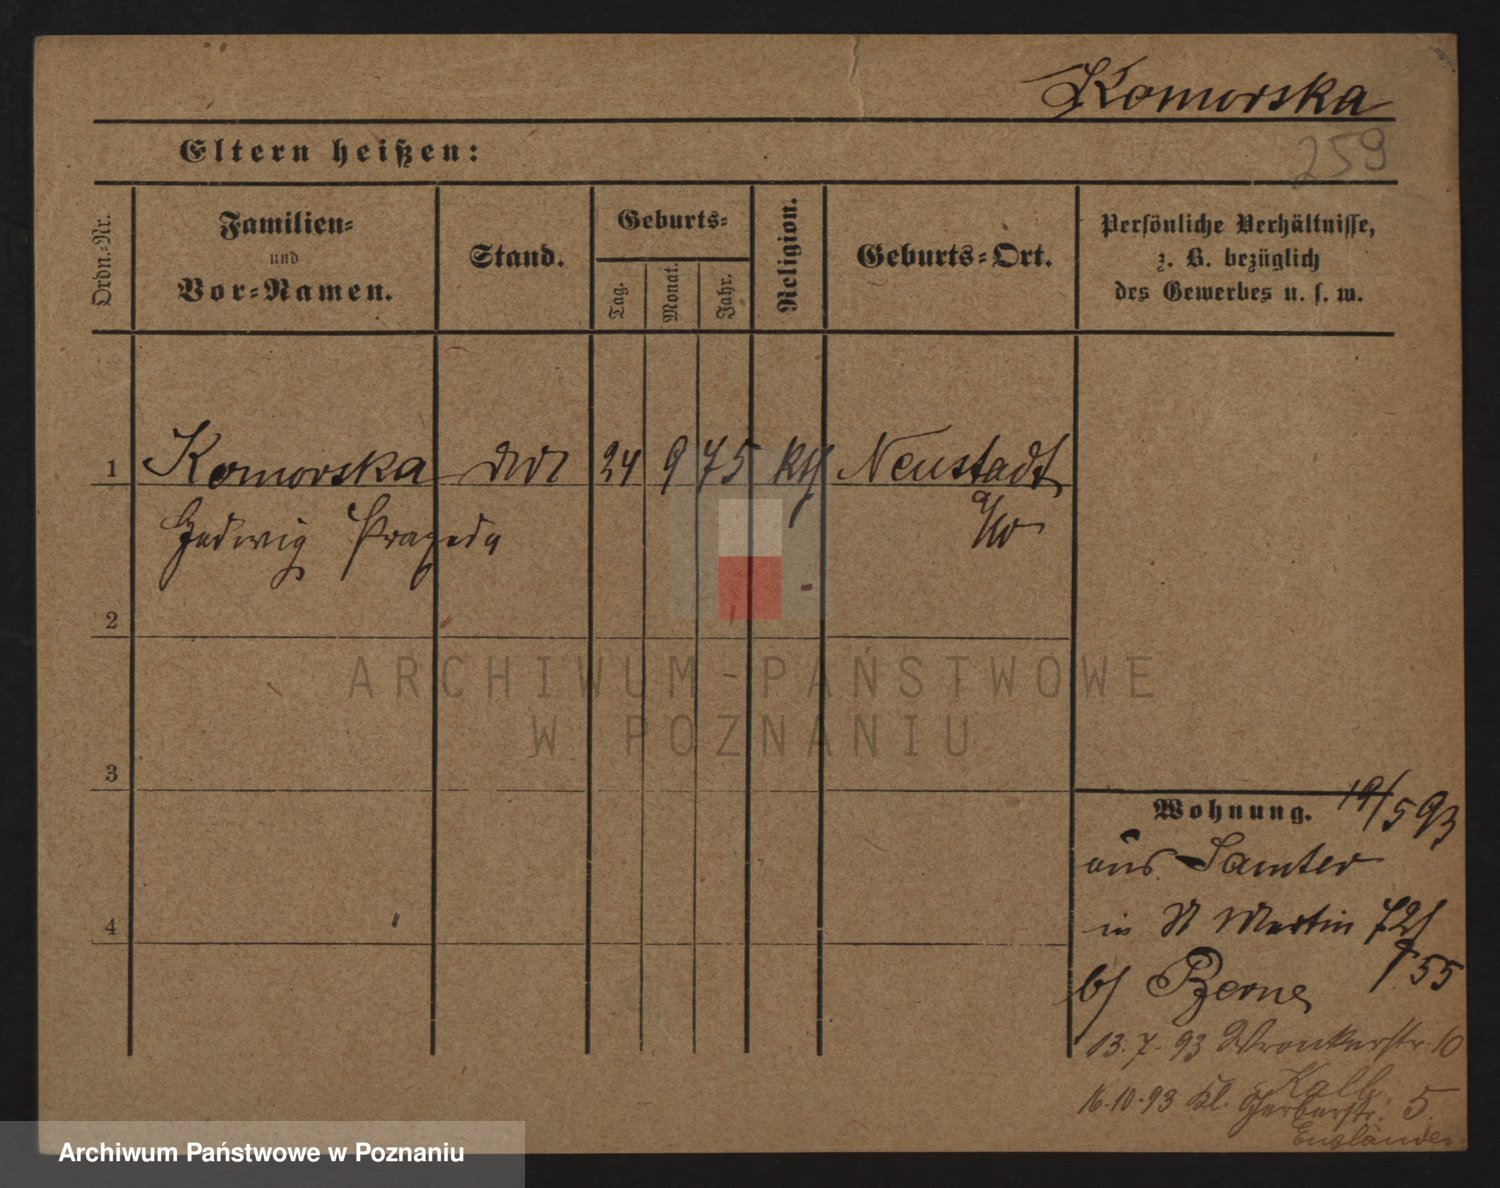 Komorska
259
Eltern heißen:
Ordn.-Nr.
Familien-
und
Vor-Namen.
Stand.
Geburts-
Tag.
Monat.
Jahr.
Religion.
Geburts-Ort.
Persönliche Verhältnisse,
z. B. bezüglich
des Gewerbes u. s. w.
1 Komorska 24 9 75 kth Neustadt
a/W
Hedwig Prazeda
2
3
4
Wohnung. 19/5 93
aus Samter
in St Martin 72/
b/ Berne 55
13.7.93 Wronkerstr. 10
Kalb
16.10.93 kl. Gerberstr. 5.
Engländer.
ARCHIWUM PAŃSTWOWE
W POZNANIU
Archiwum Państwowe w Poznaniu